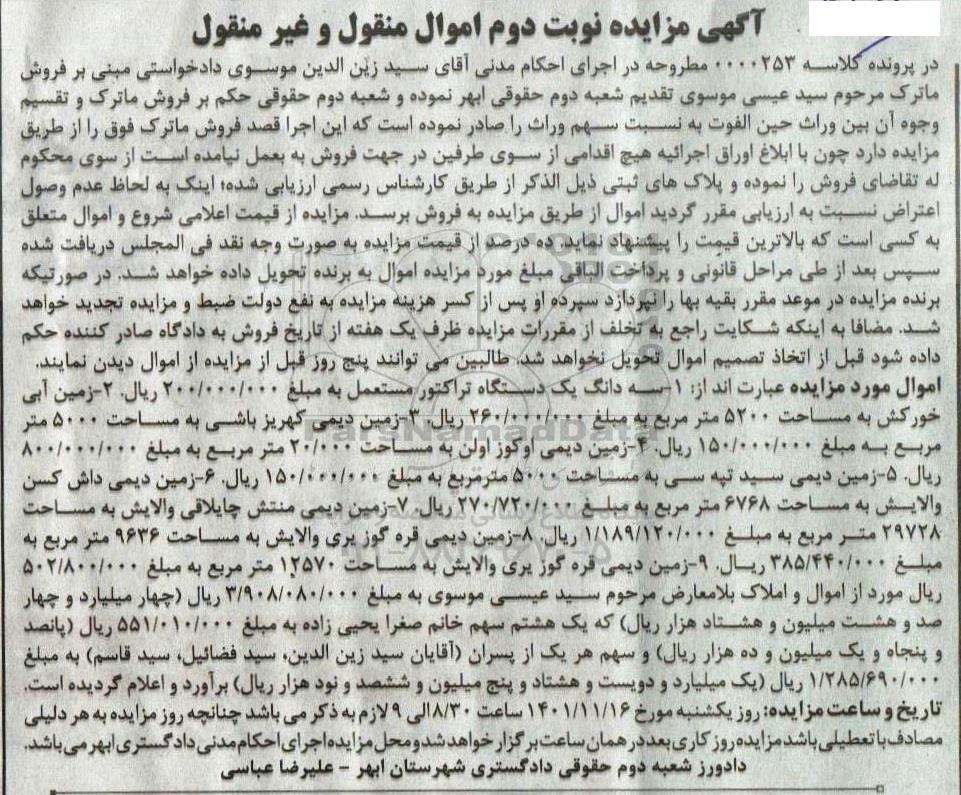 آگهی مزایده نوبت دوم اموال منقول و غیر منقول
در پرونده کلاسه ۰۰۰۰۲۵۳ مطروحه در اجرای احکام مدنی آقای سید زین الدین موسوی دادخواستی مبنی بر فروش
ماترک مرحوم سید عیسی موسوی تقدیم شعبه دوم حقوقی ابهر نموده و شعبه دوم حقوقی حکم بر فروش ماترک و تقسیم
وجوه آن بین وراث حین الفوت به نسبت سهم وراث را صادر نموده است که این اجرا قصد فروش ماترک فوق را از طریق
مزایده دارد چون با ابلاغ اوراق اجرائیه هیچ اقدامی از سوی طرفین در جهت فروش به بعمل نیامده است از سوی محکوم
له تقاضای فروش را نموده و پلاک های ثبتی ذیل الذکر از طریق کارشناس رسمی ارزیابی شده؛ اینک به لحاظ عدم وصول
اعتراض نسبت به ارزیابی مقرر گردید اموال از طریق مزایده به فروش برسد. مزایده از قیمت اعلامی شروع و اموال متعلق
به کسی است که بالاترین قیمت را پیشنهاد نماید. ده درصد از قیمت مزایده به صورت وجه نقد فی المجلس دریافت شده
سپس بعد از طی مراحل قانونی و پرداخت الباقی مبلغ مورد مزایده اموال به برنده تحویل داده خواهد شد. در صورتیکه
برنده مزایده در موعد مقرر بقیه بها را نپردازد سپرده او پس از کسر هزینه مزایده به نفع دولت ضبط و مزایده تجدید خواهد
شد. مضافا به اینکه شکایت راجع به تخلف از مقررات مزایده ظرف یک هفته از تاریخ فروش به دادگاه صادر کننده حکم
داده شود قبل از اتخاذ تصمیم اموال تحویل نخواهد شد. طالبین می توانند پنج روز قبل از مزایده از اموال دیدن نمایند.
اموال مورد مزایده عبارت اند از: ۱-سه دانگ یک دستگاه تراکتور مستعمل به مبلغ ۲۰۰/۰۰۰/۰۰۰ ریال. ۲-زمین آبی
خورکش به مساحت ۵۲۰۰ متر مربع به مبلغ ۲۶۰/۰۰۰/۰۰۰ ریال. ۳-زمین دیمی کهریز باشی به مساحت ۵۰۰۰ متر
مربع به مبلغ ۱۵۰/۰۰۰/۰۰۰ ریال. ۴-زمین دیمی اوکوز اولن به مساحت ۲۰/۰۰۰ متر مربع به مبلغ ۸۰۰/۰۰۰/۰۰۰
ریال. ۵-زمین دیمی سید تپه سی به مساحت ۵۰۰۰ مترمربع به مبلغ ۱۵۰/۰۰۰/۰۰۰ ریال. ۶-زمین دیمی داش کسن
والایش به مساحت ۶۷۶۸ متر مربع به مبلغ ۲۷۰/۷۲۰/۰۰۰ ریال. ۷-زمین دیمی منتش چایلاقی والایش به مساحت
۲۹۷۲۸ متر مربع به مبلغ ۱/۱۸۹/۱۲۰/۰۰۰ ریال. ۸-زمین دیمی قره گوز یری والایش به مساحت ۹۶۳۶ متر مربع به
مبلغ ۳۸۵/۴۴۰/۰۰۰ ریال. ۹-زمین دیمی قره گوز یری والایش به مساحت ۱۲۵۷۰ متر مربع به مبلغ ۵۰۲/۸۰۰/۰۰۰
ریال مورد از اموال و املاک بلامعارض مرحوم سید عیسی موسوی به مبلغ ۳/۹۰۸/۰۸۰/۰۰۰ ریال (چهار میلیارد و چهار
صد و هشت میلیون و هشتاد هزار ریال) که یک هشتم سهم خانم صغرا یحیی زاده به مبلغ ۵۵۱/۰۱۰/۰۰۰ ریال (پانصد
و پنجاه و یک میلیون و ده هزار ریال) و سهم هر یک از پسران (آقایان سید زین الدین، سید فضائیل، سید قاسم) به مبلغ
۱/۲۸۵/۶۹۰/۰۰۰ ریال (یک میلیارد و دویست و هشتاد و پنج میلیون و ششصد و نود هزار ریال) برآورد و اعلام گردیده است.
تاریخ و ساعت مزایده: روز یکشنبه مورخ ۱۴۰۱/۱۱/۱۶ ساعت ۸/۳۰ الی ۹ لازم به ذکر می باشد چنانچه روز مزایده به هر دلیلی
مصادف با تعطیلی باشد مزایده روز کاری بعد در همان ساعت برگزار خواهد شد و محل مزایده اجرای احکام مدنی دادگستری ابهر می باشد.
دادورز شعبه دوم حقوقی دادگستری شهرستان ابهر - علیرضا عباسی
ParsNamadData